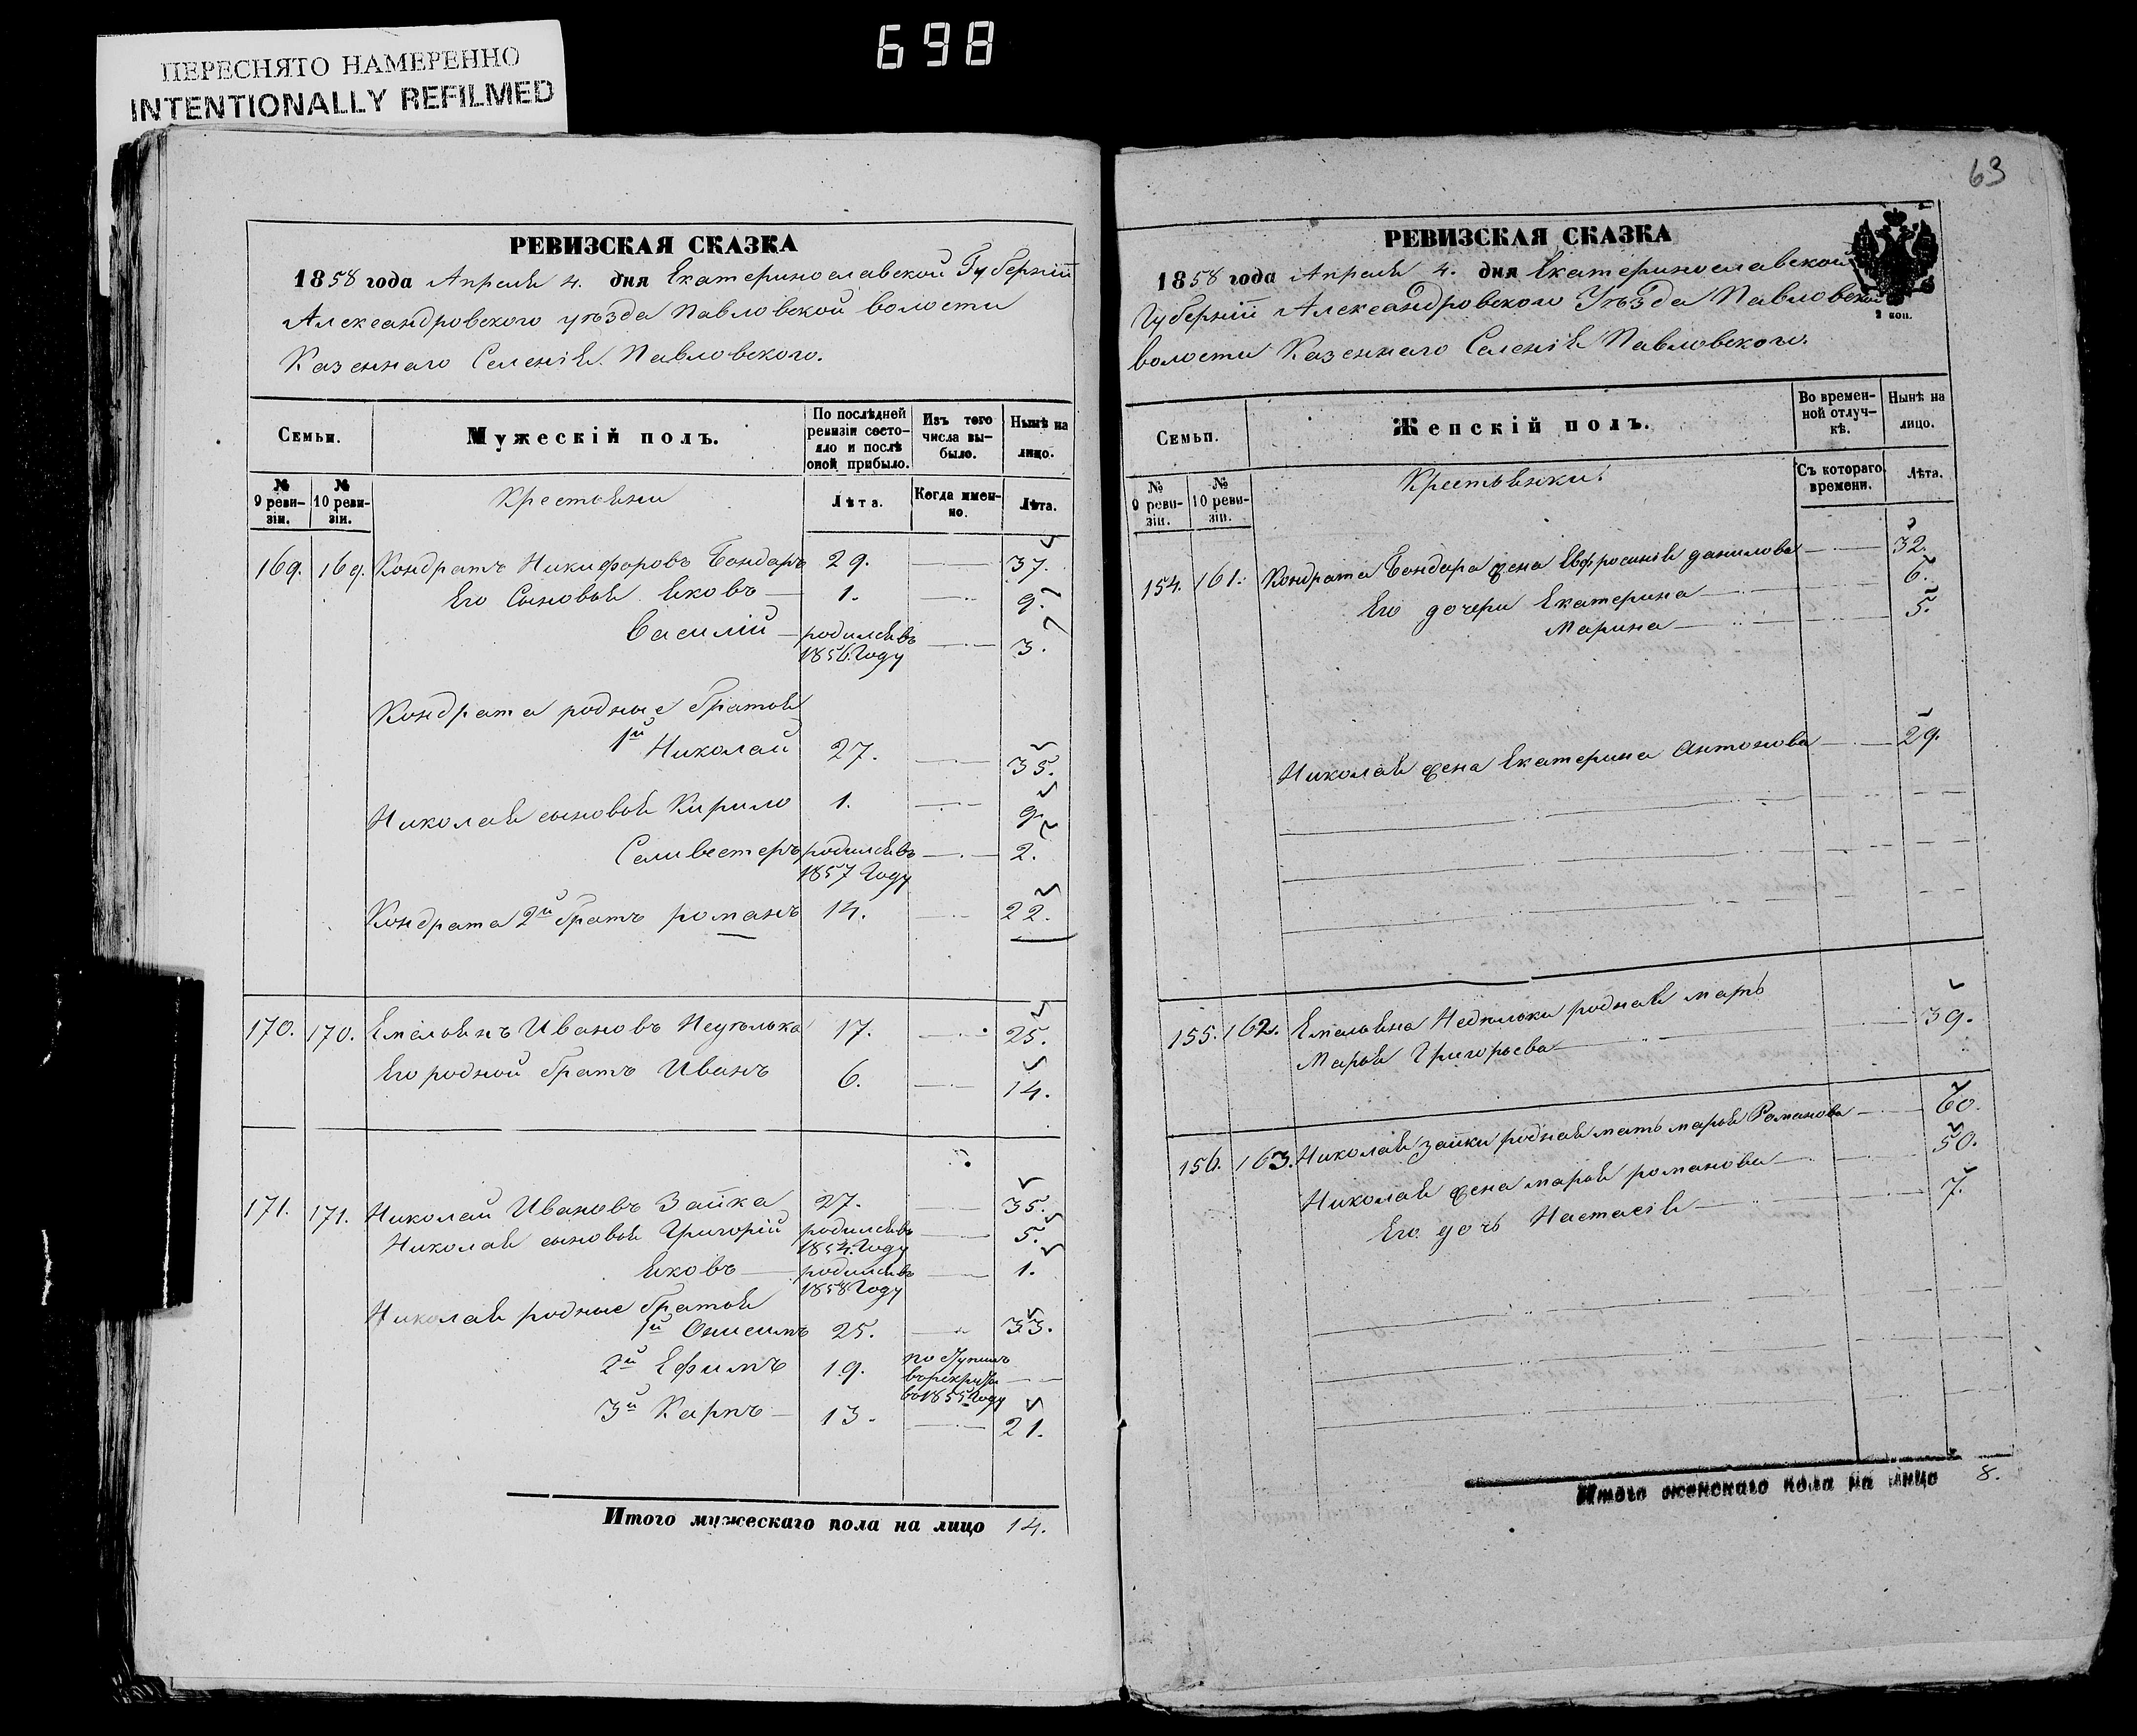 698
ПЕРЕСНЯТО НАМЕРЕННО
INTENTIONALLY REFILMED
РЕВИЗСКАЯ СКАЗКА
1858 года Апреля 4. дня Екатеринославской Губернiи
Александровского уѣзда Павловской волости
Казеннаго Селенiя Павловского.
Семьи.
Мужескiй полъ.
По последней ревизiи состояло и послѣ оной прибыло.
Изъ того числа выбыло.
Нынѣ на лицо.
№ 9 ревизiи.
№ 10 ревизiи.
Крестьяни
Лѣта.
Когда именно.
Лѣта.
169. 169. Кондратъ Никифоровъ Бондаръ 29. 37.
Его Сыновья Яковъ 1. 9.
Василiй родился въ 1856. Году 3.
Кондрата родные братья
1й Николай 27. 35.
Николая сыновья Кирило 1. 9.
Селивестеръ родился въ 1857 Году 2.
Кондрата 2й братъ романъ 14. 22.
170. 170. Емельянъ Ивановъ 17. 25.
Его родной братъ Иванъ 6. 14.
171. 171. Николай Ивановъ Заика 27. 35.
Николая сыновья Григорiй родился въ 1854. Году 5.
Яковъ родился въ 1858 Году 1.
Николая родные братья
1й Онисимъ 25. 33.
2й Ефимъ 19. въ 1855 Году
3й Карпъ 13. 21.
Итого мужескаго пола на лицо 14.
63
РЕВИЗСКАЯ СКАЗКА
1858 года Апреля 4. дня Екатеринославской
Губернiи Александровского Уѣзда Павловской
волости Казеннаго Селенiя Павловского.
Семьи.
Женскiй полъ.
Во временной отлучкѣ.
Нынѣ на лицо.
№ 9 ревизiи.
№ 10 ревизiи.
Крестьянки.
Съ котораго времени.
Лѣта.
154. 161. Кондрата Бондара жена Евфросинiя данилова 32.
Его дочери Екатерина 6.
Марина 5.
Николая жена Екатерина Антонова 29.
155. 162. Емельяна родная мать
Марья Григорьева 39.
156. 163. Николая заики родная мать марья Романова 60.
Николая жена марья романова 50.
Его дочь Настасiя 7.
Итого женскаго пола на лицо 8.